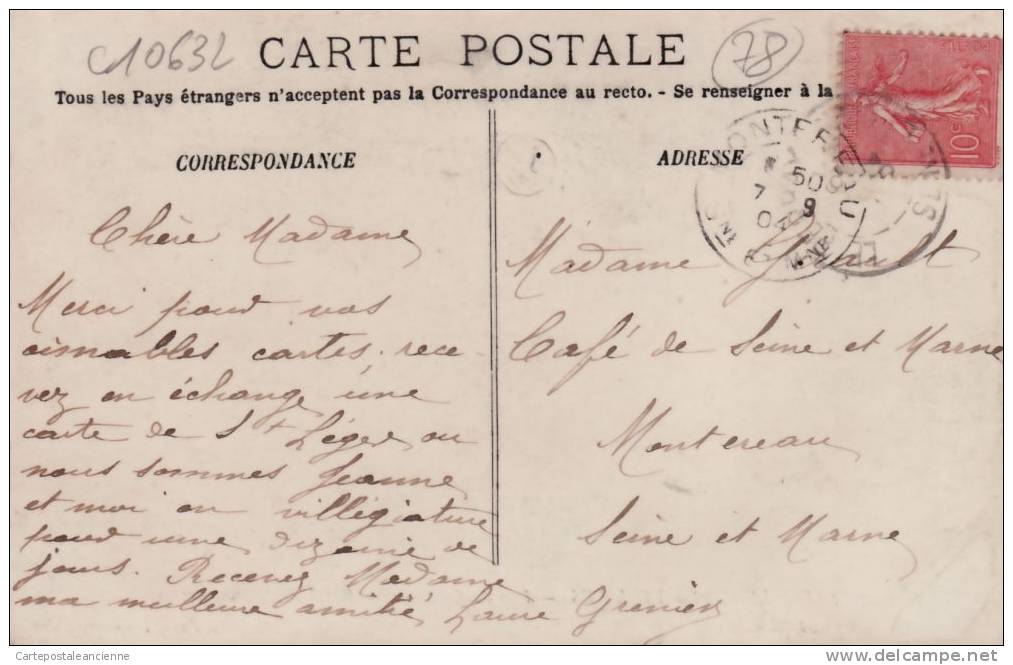 C10632
78
CARTE POSTALE
Tous les Pays étrangers n'acceptent pas la Correspondance au recto. - Se renseigner à la
CORRESPONDANCE
ADRESSE
10c
Chère Madame
Merci pour vos
aimables cartes. rece-
vez en échange une
carte de St Léger ou
nous sommes Jeanne
et moi en villégiature
pour une dizaine de
jours. Recevez Madame
ma meilleure amitié Laure Grenier
Madame
Café de Seine et Marne
Montereau
Seine et Marne
Cartepostaleancienne
www.delcampe.net